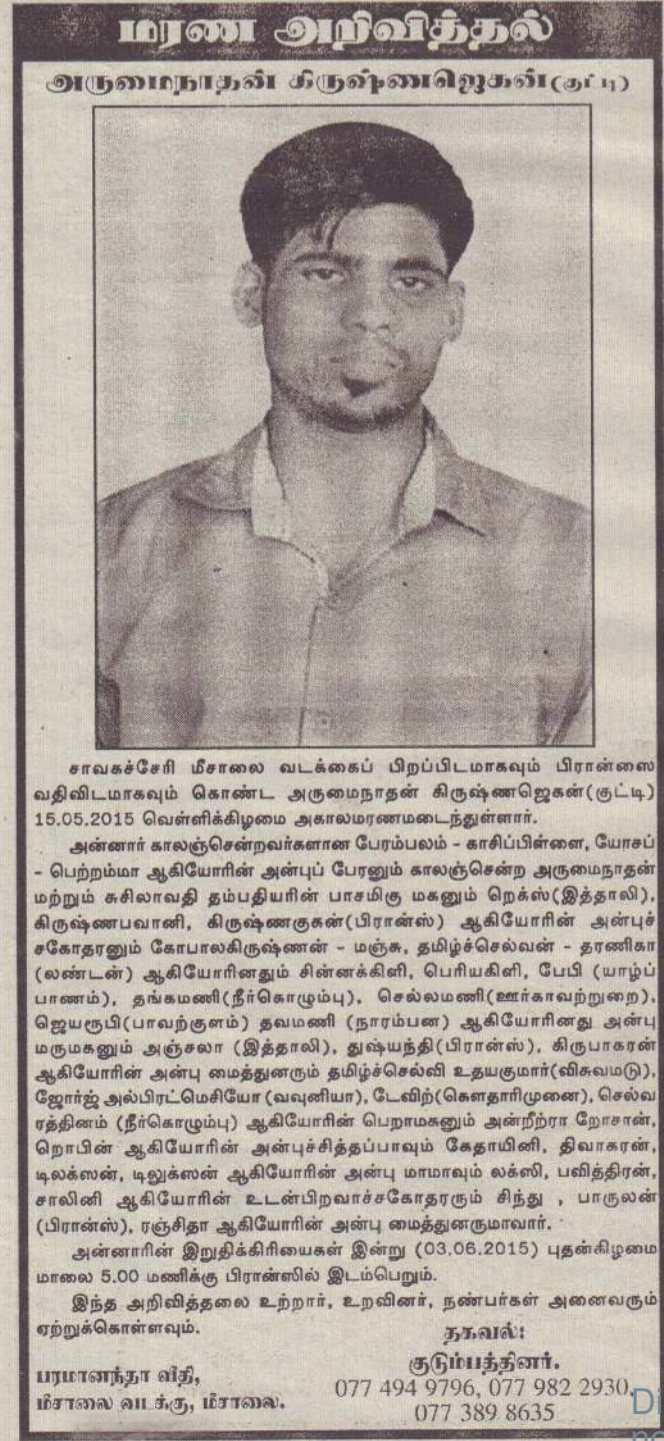 மரண அறிவித்தல்
அருமைநாதன் கிருஷ்ணஜெகன்(குட்டி)
சாவகச்சேரி மீசாலை வடக்கைப் பிறப்பிடமாகவும் பிரான்ஸை
வதிவிடமாகவும் கொண்ட அருமைநாதன் கிருஷ்ணஜெகன்(குட்டி)
15.05.2015 வெள்ளிக்கிழமை அகாலமரணமடைந்துள்ளார்.
அன்னார் காலஞ்சென்றவர்களான பேரம்பலம் - காசிப்பிள்ளை, யோசப்
- பெற்றம்மா ஆகியோரின் அன்புப் பேரனும் காலஞ்சென்ற அருமைநாதன்
மற்றும் சுசிலாவதி தம்பதியரின் பாசமிகு மகனும் றெக்ஸ்(இத்தாலி),
கிருஷ்ணபவானி, கிருஷ்ணகுகன்(பிரான்ஸ்) ஆகியோரின் அன்புச்
சகோதரனும் கோபாலகிருஷ்ணன் - மஞ்சு, தமிழ்ச்செல்வன் - தரணிகா
(லண்டன்) ஆகியோரினதும் சின்னக்கிளி, பெரியகிளி, பேபி (யாழ்ப்
பாணம்), தங்கமணி(நீர்கொழும்பு), செல்லமணி(ஊர்காவற்றுறை),
ஜெயரூபி(பாவற்குளம்) தவமணி (நாரம்பன) ஆகியோரினது அன்பு
மருமகனும் அஞ்சலா (இத்தாலி), துஷ்யந்தி(பிரான்ஸ்), கிருபாகரன்
ஆகியோரின் அன்பு மைத்துனரும் தமிழ்ச்செல்வி உதயகுமார்(விசுவமடு),
ஜோர்ஜ் அல்பிரட்மெசியோ (வவுனியா), டேவிற்(கௌதாரிமுனை), செல்வ
ரத்தினம் (நீர்கொழும்பு) ஆகியோரின் பெறாமகனும் அன்றீற்ரா றோசான்,
றொபின் ஆகியோரின் அன்புச்சித்தப்பாவும் கேதாயினி, திவாகரன்,
டிலக்ஸன், டிலுக்ஸன் ஆகியோரின் அன்பு மாமாவும் லக்ஸி, பவித்திரன்,
சாலினி ஆகியோரின் உடன்பிறவாச்சகோதரரும் சிந்து , பாருலன்
(பிரான்ஸ்), ரஞ்சிதா ஆகியோரின் அன்பு மைத்துனருமாவார்.
அன்னாரின் இறுதிக்கிரியைகள் இன்று (03.06.2015) புதன்கிழமை
மாலை 5.00 மணிக்கு பிரான்ஸில் இடம்பெறும்.
இந்த அறிவித்தலை உற்றார், உறவினர், நண்பர்கள் அனைவரும்
ஏற்றுக்கொள்ளவும்.
தகவல்:
குடும்பத்தினர்.
பரமானந்தா வீதி,
மீசாலை வடக்கு, மீசாலை.
077 494 9796, 077 982 2930,
077 389 8635